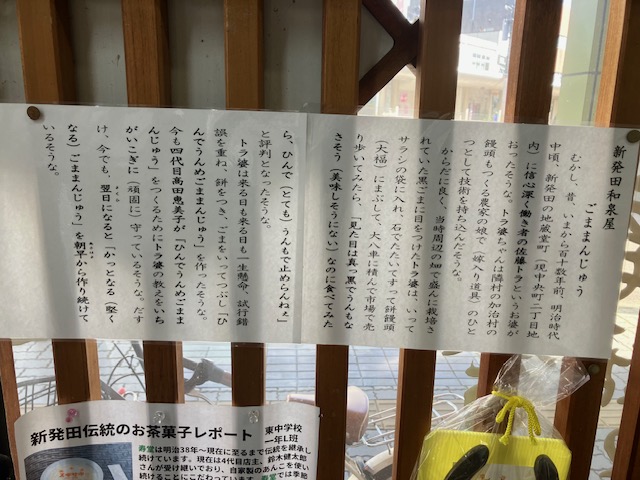 新発田和泉屋
ごままんじゅう
むかし、昔、いまから百十数年前、明治時代
中頃、新発田の地蔵堂町(現中央町二丁目地
内)に信心深く働き者の佐藤トラというお婆が
おったそうな。トラ婆ちゃんは隣村の加治村の
饅頭もつくる農家の娘で「嫁入り道具」のひと
つとして技術を持ち込んだそうな。
からだに良く、当時周辺の畑で盛んに栽培さ
れていた黒ごまに目をつけたトラ婆は、いって
サラシの袋に入れ、石でたたいてすって餅饅頭
(大福)にまぶして、大八車に積んで市場で売
り歩いてみたら、「見た目は真っ黒でうんもな
さそう(美味しそうにない)なのに食べてみた
ら、ひんで(とても)うんもで止めらんねぇ」
と評判となったそうな。
トラ婆は来る日も来る日も一生懸命、試行錯
誤を重ね、餅をつき、ごまをいってつぶし「ひ
んでうんめごままんじゅう」を作ったそうな。
今も四代目高田恵美子が「ひんでうんめごまま
んじゅう」をつくるためにトラ婆の教えをいち
がいこぎに(頑固に)守っているそうな。だす
け、今でも、翌日になると「かっとなる(堅く
なる)ごままんじゅう」を朝早から作り続けて
いるそうな。
さくら
あさはえ
新発田伝統のお茶菓子レポート
東中学校
一年L班
寿堂は明治38年~現在に至るまで伝統を継承し
続けています。現在は4代目店主、鈴木健太郎
さんが受け継いでおり、自家製のあんこを使い
続けることにこだわっています。寿堂では季節